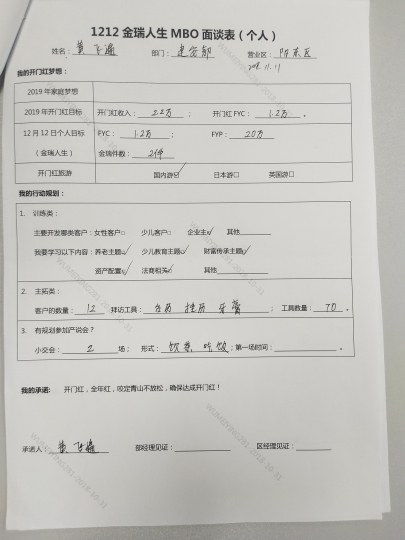 1212 金瑞人生 MBO 面谈表（个人）
姓名： 部门： 营业区：
2018.11.11
我的开门红梦想：
2019 年家庭梦想
2019 年开门红目标 开门红收入： 2.2万 ； 开门红 FYC： 1.2万 。
12 月 12 日个人目标 FYC： 1.2万 ； FYP： 20万
（金瑞人生） 金瑞件数： 2件
开门红旅游 国内游□✓ 日本游□ 英国游□
我的行动规划：
1. 训练类：
主要开发哪类客户：女性客户□ 少儿客户□ 企业主□✓ 其他
我要学习以下内容：养老主题□✓ 少儿教育主题□✓ 财富传承主题□✓
资产配置□✓ 法商相关□✓ 其他
2. 主拓类：
客户的数量： 12 拜访工具： 台历 挂历 牙膏 ； 工具数量： 70 。
3. 有规划参加产说会？
小交会： 2 场； 形式： 饮茶 吃饭 ；第一场时间： 。
我的承诺： 开门红，全年红，咬定青山不放松，确保达成开门红！
承诺人： 部经理见证： 区经理见证：